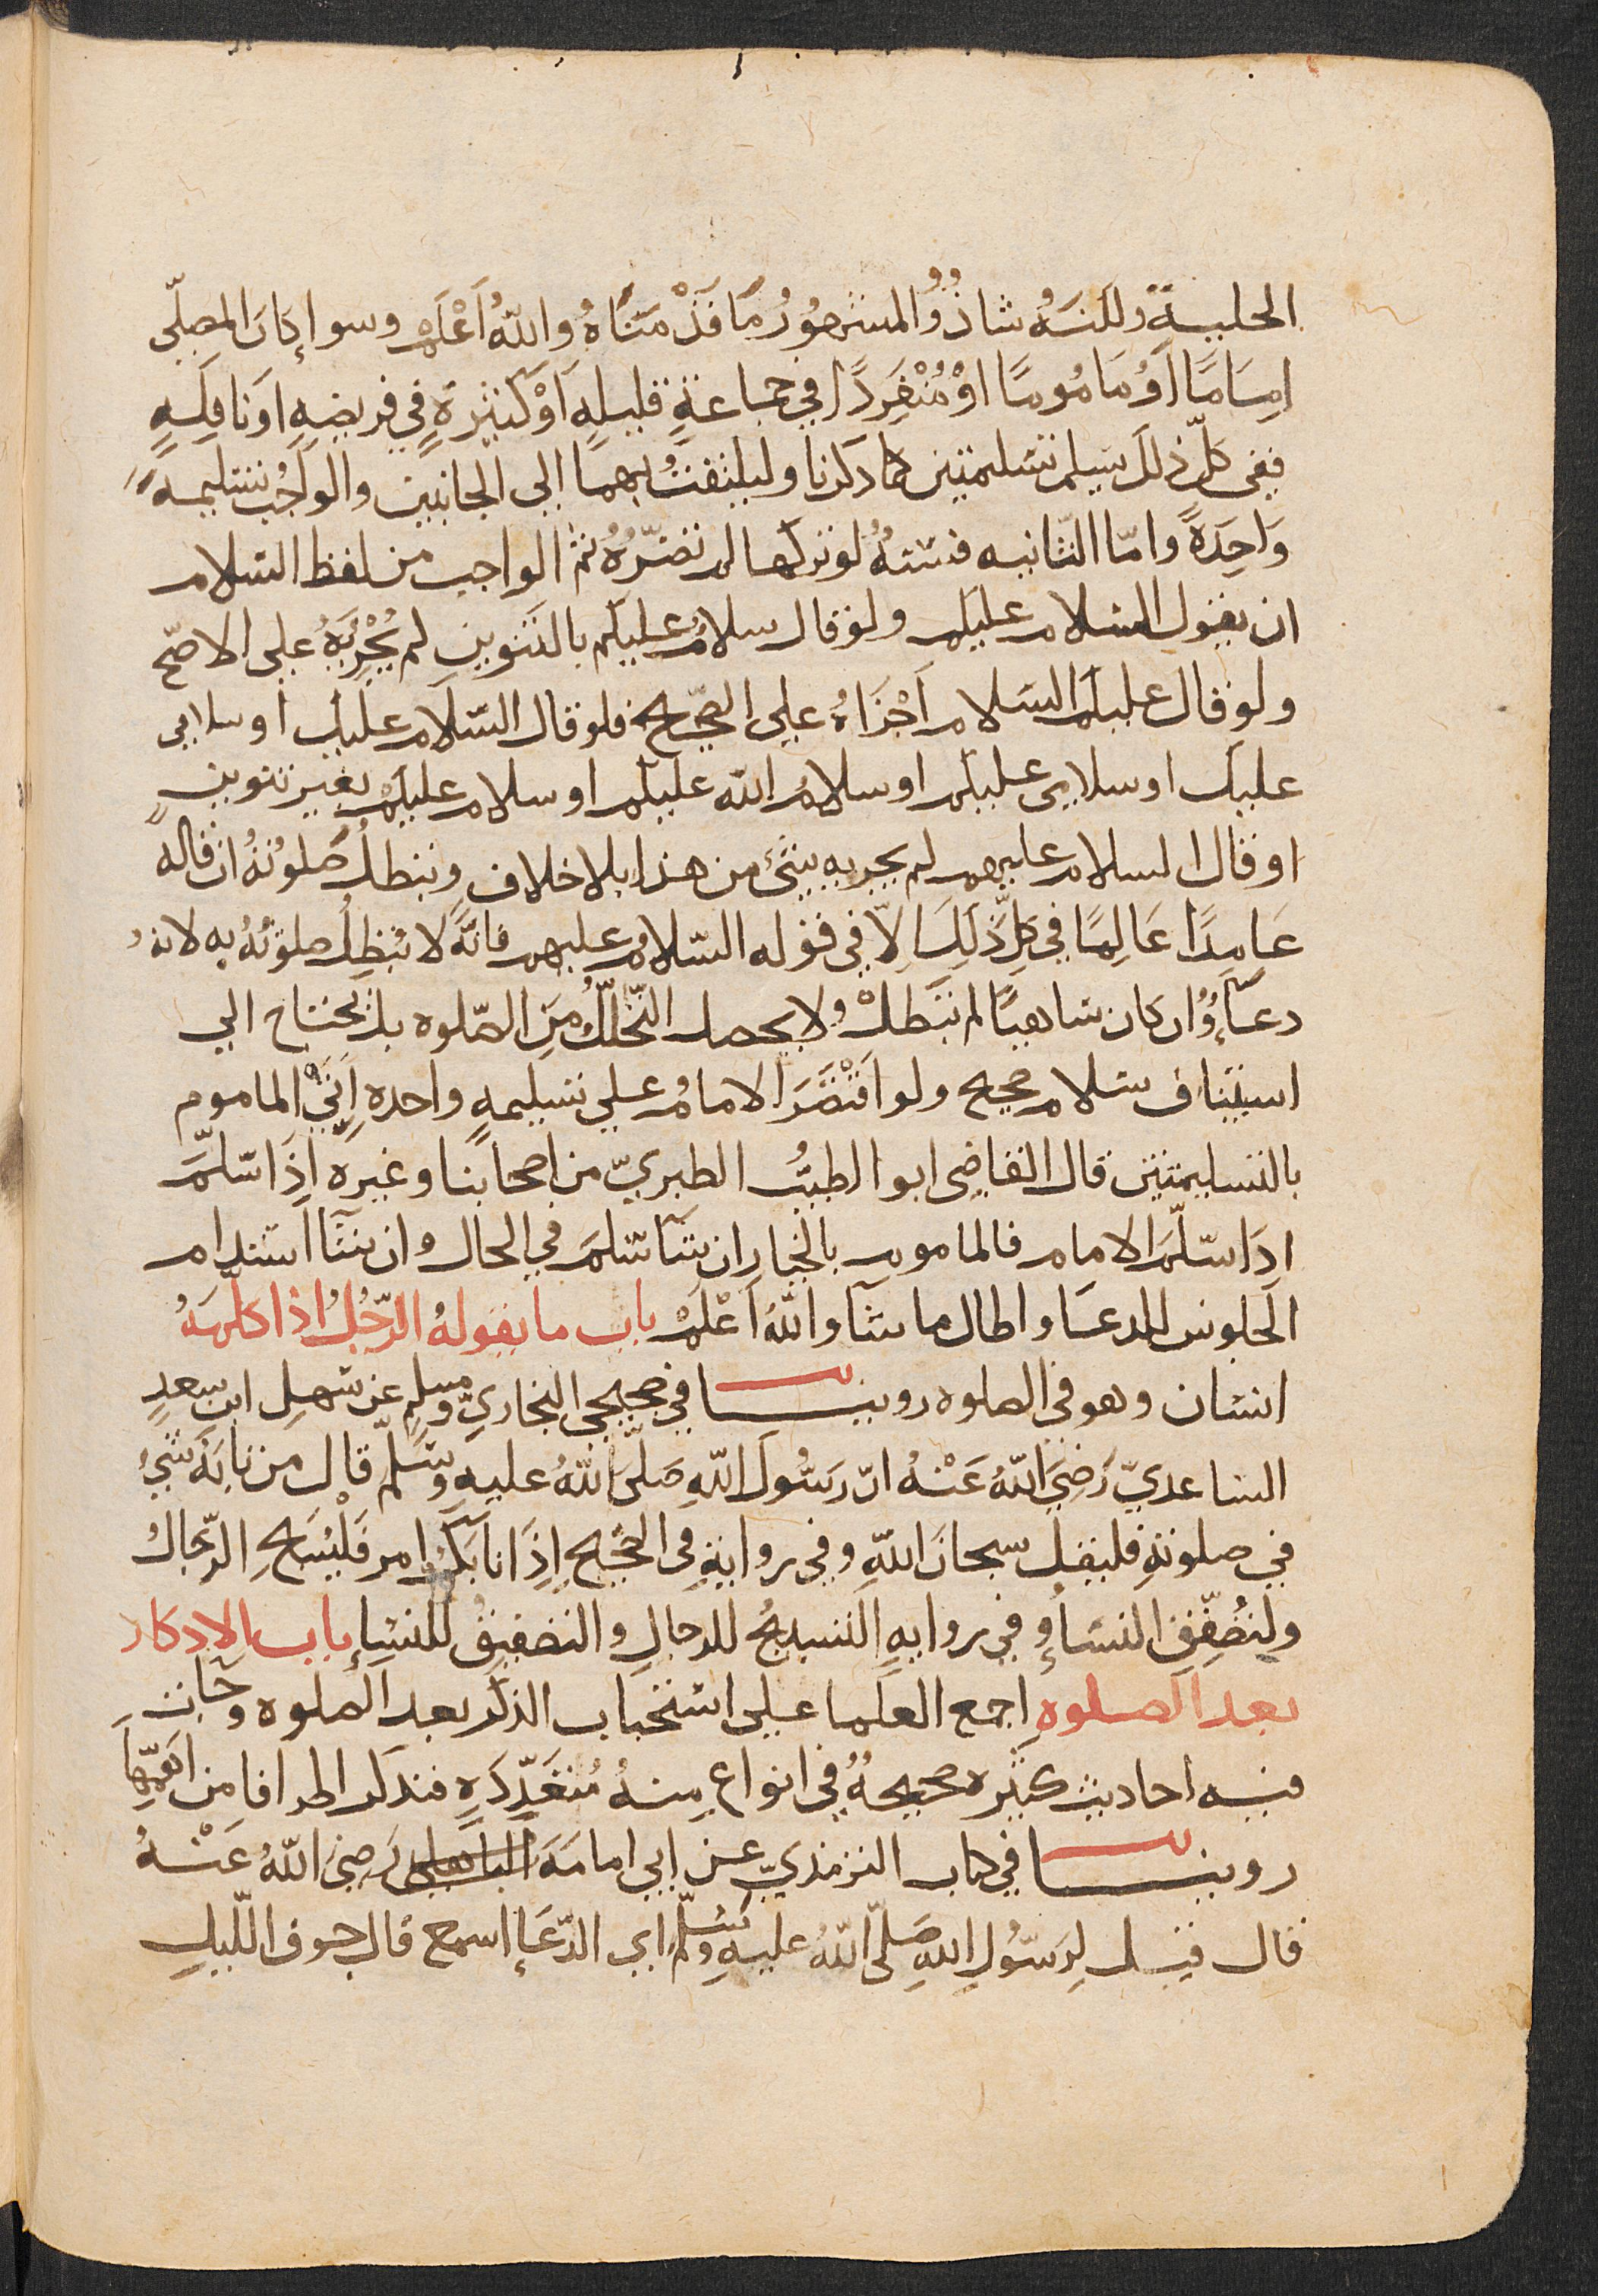 الحليةِ ولكنهُ شاذٌ والمشهورُ ما قدْمناهُ واللهُ اَعْلم وسوا إكانَ المصلّي
اِمامًا اَوْ مَامُومًا اوْ مُنْفَرِدًا في جماعةٍ قليلهٍ اَوْ كثيرةٍ في فريضهٍ اونافِلَهٍ
ففى كلّ ذلك يَسلم تسليمتين كما ذكرنا وليلتفتُ بهما الي الجانبين والواجبُ تسليمهً
وَاحِدَةً وامّا الثّانيه فسنّةُ لو تركها لم تضرّهُ ثم الواجب من لفظ السّلام
ان يقول السّلام عليكم ولو قال سلامٌ عليكم بالتنوينِ لم يُجْزِئهُ على الاصّح
ولو قال عليكم السّلام اَجْزَاهُ علي الصّحيح فلو قال السّلام عليك او سلامي
عليك او سلامي عليكم او سلامُ اللّه عليكم او سلام عليكم بغير تنوينٍ
او قال السلام عليهم لم يجزيه شئ من هذا بلا خلاف وتبطلُ صَلوتهُ ان قاله
عَامِدًا عَالِمًا في كلِّ ذَلِكَ اِلّا في قوله السّلامُ عليهم فانّه لا تبْطِلُ صلوتهُ به لانهُ
دعآءٌ وان كان ساهيًا لم تبَطلْ ولا يحصل التّحللُّ مِنَ الصّلوه بل يحتاج الي
استيناف سلام صحيح ولو اقْتصَرَ الامامُ علي تسليمهٍ واحده اَتي الماموم
بالتسليمتين قال القاضي ابو الطيبُ الطبريّ من اصحابنا وغيره اِذَا سلّمَ
اِدَا سلّمَ الامام فالماموم بالخيار ان شآ سَلمَ في الحال وان شآ استدام
الجلوس للدعا واطال ما شآ واللّهُ اَعْلمْ باب ما يقولهُ الرّجُلُ اذا كلّمهُ
انسان وهو في الصلوه روينا في صحيحي البخاريّ ومسلمٍ عن سَهلِ ابن سعدٍ
الساعديّ رَضِيَ اللّهُ عَنْهُ انّ رَسُولَ اللّهِ صَلّي اللّهُ عليهِ وسَلّم قال من نابَهُ شئُ
في صلوتهِ فليقلْ سبحانَ اللّهِ وفي روايةٍ في الصّحيحِ اِذَا نابكمُ امر فَلْيُسَبّحِ الرّجالُ
ولتصَفّقِ النسَآءُ وفي روايهٍ التسبيحُ للرجالِ والتصفيقُ للنسَاءِ باب الاذكار
بعد الصلوهِ اجمع العلَما علي استحباب الذكر بعد الصلوه وجَاءت
فيه احاديث كثيره صحيحةٌ في انواع منهُ مُتعَدّدَهٍ فنذكر اطرافا من اَهمّهَا
روينا في كتاب الترمذيّ عن ابي امامَهَ الباهلي رَضِيَ اللّهُ عَنْهُ
قال قيل لِرَسُولِ اللّهِ صَلّي اللّهُ عليهِ وسَلّم اي الدّعَاءِ اسمع قال جوف اللّيلِ